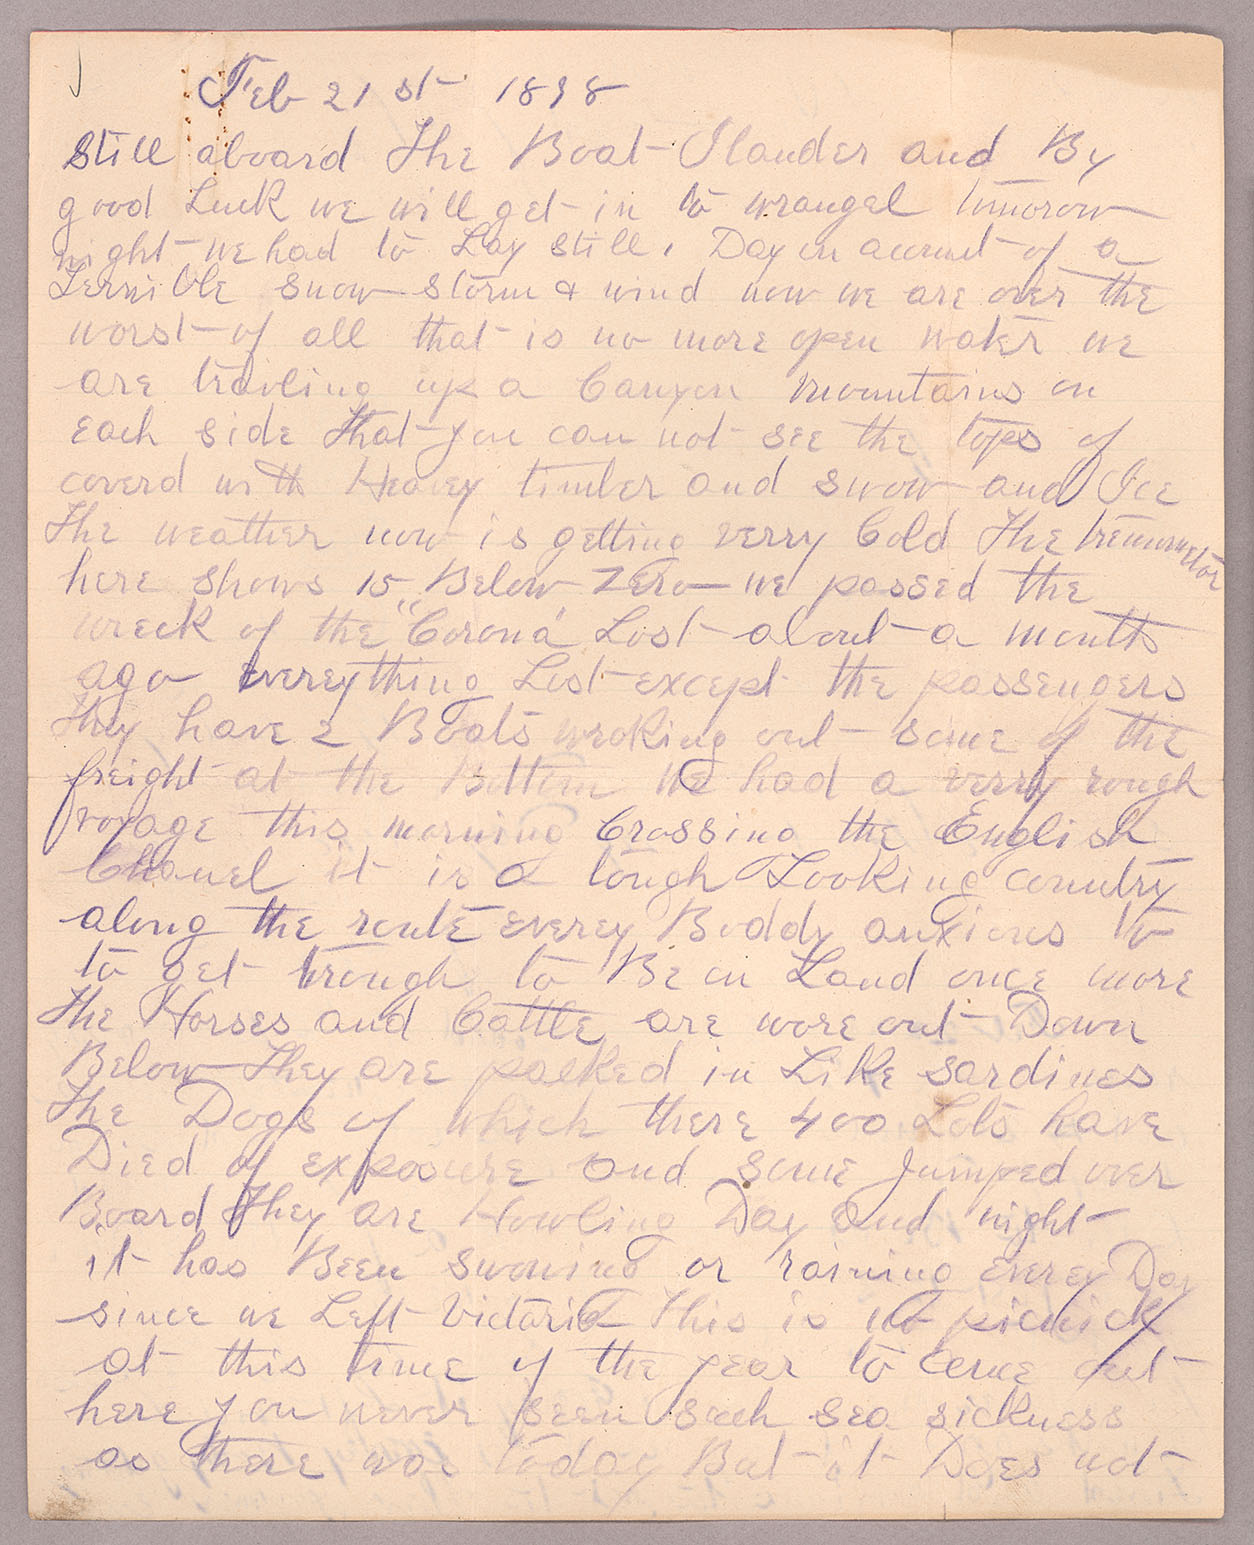 Feb 21 st 1898
Still aboard The Boat Ilander and By
good Luck we will get in to wrangel tomorow
night we had to Lay still 1 Day on account of a
Terrible snow storm & wind now we are over the
worst of all that is no more open water we
are travling up a Canyon mountains on
each side that you can not see the tops of
coverd with Heavey timber and snow and Ice
The weather now is getting verry Cold The tremometor
here shows 15 Below Zero we passed the
wreck of the "Corona" Lost about a month
ago evereything Lost except the passengers
They have 2 Boats wroking out some of the
freight at the Bottem We had a verry rough
voyage this morning Crossing the English
Chanel it is a tough Looking country
along the route everey Boddy anxious to
to get trough to Be on Land once more
The Horses and Cattle are wore out Down
Below They are packed in Like sardines
The Dogs of which there 400 Lots have
Died of exposure and some jumped over
Board They are Howling Day and night
it has Been snowing or raining everey Day
since we Left Victoria This is no picnick
at this time of the year to come out
here you never seen such sea sickness
as there was today But it Does not